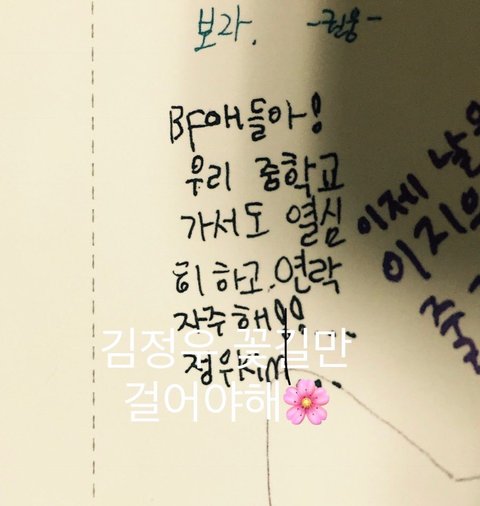 보라. -권웅-
BF애들아!
우리 중학교
가서도 열심
히 하고.연락
자주해!!...
정우Kim...
김정우 꽃길만
걸어야해🌸
이제 날
이지의